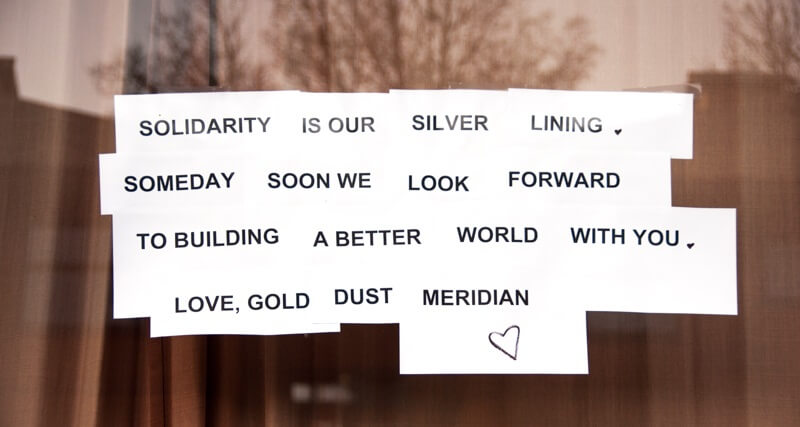 SOLIDARITY IS OUR SILVER LINING.
SOMEDAY SOON WE LOOK FORWARD
TO BUILDING A BETTER WORLD WITH YOU.
LOVE, GOLD DUST MERIDIAN